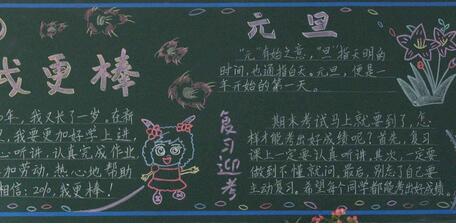 我更棒
年，我又长了一岁。在新
，我要更加好学上进，
心听讲，认真完成作业
加劳动，热心地帮助
相信：20，我更棒！
复习迎考
元旦
“元”有始之意，“旦”指天明的
时间，也通指白天。元旦，便是一
年开始的第一天。
期末考试马上就要到了，怎
样才能考出好成绩呢？首先，复习
课上一定要认真听讲，其次，一定要
做到不懂就问，最后，别忘了自己要
主动复习。希望每个同学都能考出好成绩。